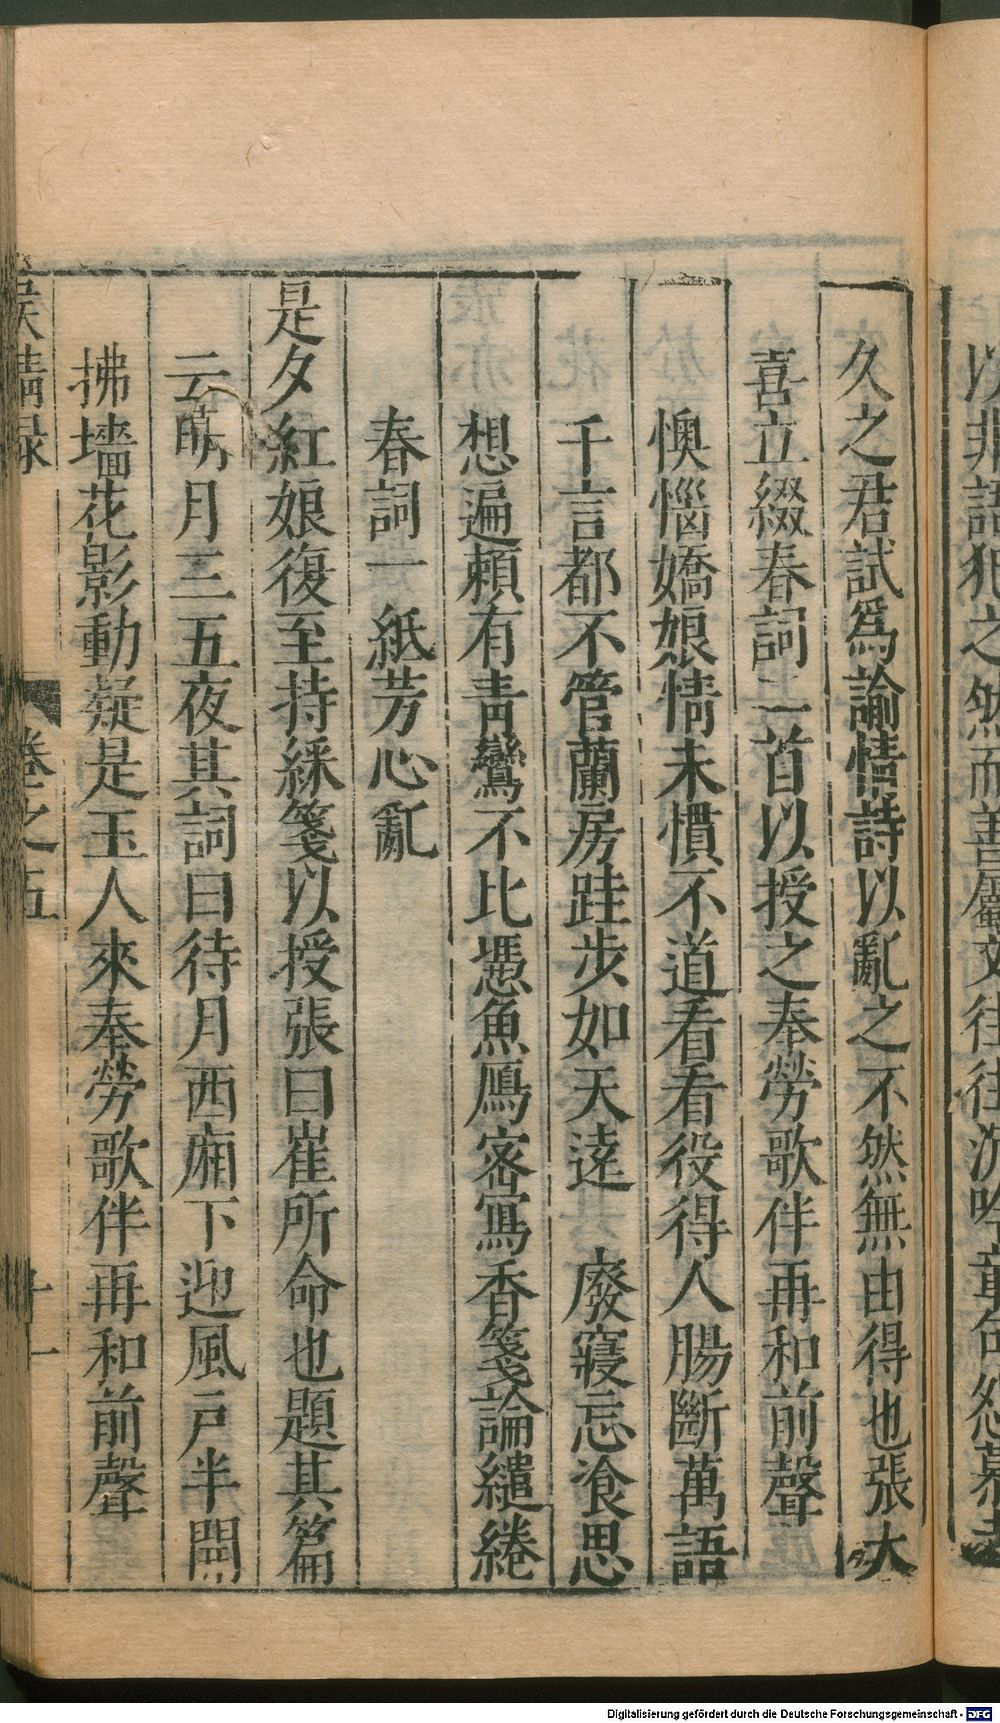 以非語犯之然而善屬文往往沉吟章句怨慕者
久之君試爲諭情詩以亂之不然無由得也張大
喜立綴春詞二首以授之奉勞歌伴再和前聲
懊惱嬌娘情未慣不道看看役得人腸斷萬語
千言都不管蘭房跬步如天遠　廢寢忘飡思
想遍賴有青鸞不比凴魚鴈密寫香箋論繾綣
春詞一紙芳心亂
是夕紅娘復至持綵箋以授張曰崔所命也題其篇
云明月三五夜其詞曰待月西廂下迎風戸半開
拂墻花影動疑是玉人來奉勞歌伴再和前聲
侯鯖録
卷之五
十一
Digitalisierung gefördert durch die Deutsche Forschungsgemeinschaft - DFG